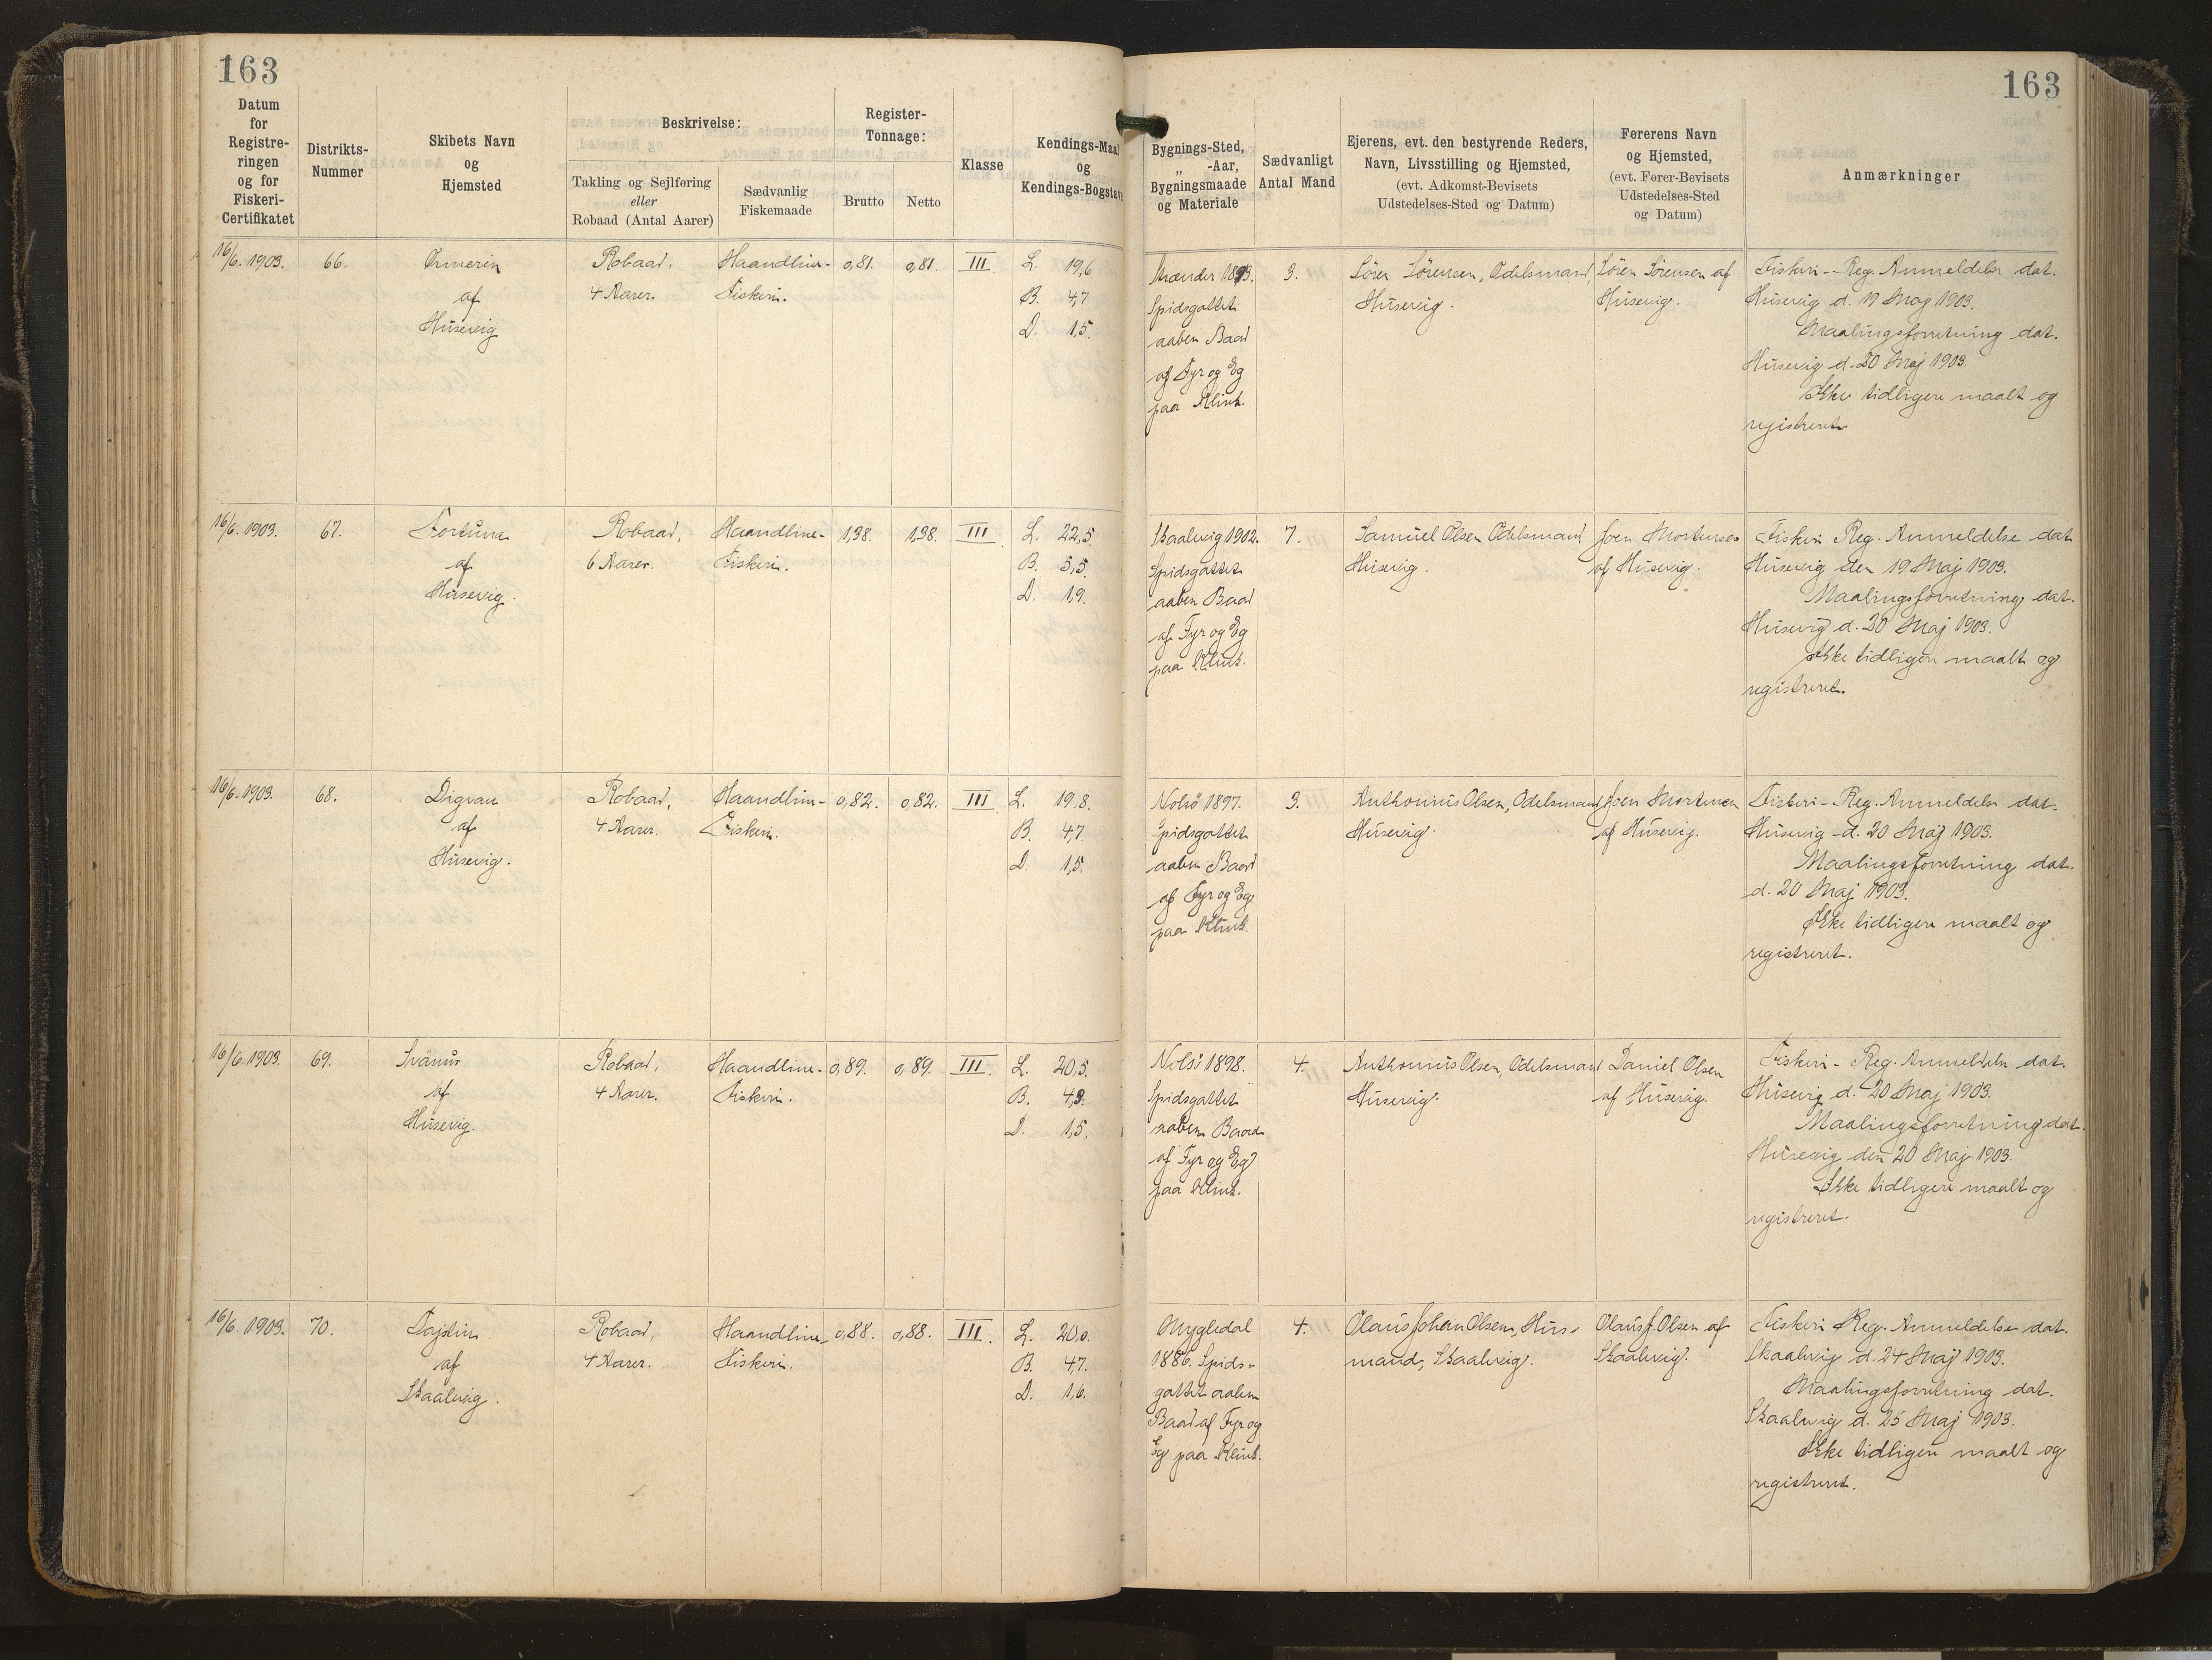 163
163
Datum
for
Registre-
ringen
og for
Fiskeri-
Certifikatet
Distrikts-
Nummer
Skibets Navn
og
Hjemsted
Beskrivelse:
Takling og Sejlføring
eller
Robaad (Antal Aarer)
Sædvanlig
Fiskemaade
Register-
Tonnage:
Brutto
Netto
Klasse
Kendings-Maal
og
Kendings-Bogstave
Bygnings-Sted,
„ -Aar,
Bygningsmaade
og Materiale
Sædvanligt
Antal Mand
Ejerens, evt. den bestyrende Reders,
Navn, Livsstilling og Hjemsted,
(evt. Adkomst-Bevisets
Udstedelses-Sted og Datum)
Førerens Navn
og Hjemsted,
(evt. Fører-Bevisets
Udstedelses-Sted
og Datum)
Anmærkninger
16/6. 1903.
66.
af
Husevig
Robaad,
4 Aarer.
Haandline-
Fiskeri.
0,81.
0,81.
III
L. 19,6
B. 4,7
D. 1,5.
Strænder 1893.
Spidsgattet
aaben Baad
af Fyr og Eg
paa Klink.
3.
Sören Sörensen, Odelsmand,
Husevig.
Sören Sörensen af
Husevig.
Fiskeri-Reg. Anmeldelse dat.
Husevig d. 19 Maj 1903.
Maalingsforretning dat.
Husevig d. 20 Maj 1903.
Ikke tidligere maalt og
registreret.
16/6. 1903.
67.
Fortuna
af
Husevig.
Robaad,
6 Aarer.
Haandline-
Fiskeri.
1,38.
1,38.
III
L. 22,5.
B. 5,5.
D. 1,9.
Skaalevig 1902.
Spidsgattet
aaben Baad
af Fyr og Eg
paa Klink.
7.
Samuel Olsen Odelsmand
Husevig.
Joen Mortensen
af Husevig.
Fiskeri Reg. Anmeldelse dat
Husevig den 19 Maj 1903.
Maalingsforretning dat.
Husevig d. 20 Maj 1903.
Ikke tidligere maalt og
registreret.
16/6. 1903.
68.
Digran
af
Husevig.
Robaad,
4 Aarer.
Haandline-
Fiskeri.
0,82.
0,82.
III
L. 19,8.
B. 4,7
D. 1,5.
Nolsö 1897.
Spidsgattet
aaben Baad
af Fyr og Eg
paa Klink.
3.
Anthonius Olsen, Odelsmand
Husevig.
Joen Mortensen
af Husevig.
Fiskeri-Reg. Anmeldelse dat.
Husevig d. 20 Maj 1903.
Maalingsforretning dat.
d. 20 Maj 1903.
Ikke tidligere maalt og
registreret.
16/6. 1903.
69.
af
Husevig.
Robaad,
4 Aarer.
Haandline-
Fiskeri.
0,89.
0,89.
III.
L. 20,5.
B. 4,9.
D. 1,5.
Nolsö 1898.
Spidsgattet
aaben Baad
af Fyr og Eg
paa Klink.
4.
Anthonius Olsen, Odelsmand
Husevig.
Daniel Olsen
af Husevig.
Fiskeri-Reg. Anmeldelse dat.
Husevig d. 20 Maj 1903.
Maalingsforretning dat.
Husevig den 20 Maj 1903.
Ikke tidligere maalt og
registreret.
16/6. 1903.
70.
af
Skaalevig.
Robaad,
4 Aarer.
Haandline-
Fiskeri.
0,88.
0,88.
III.
L. 20,0.
B. 4,7.
D. 1,6.
Mygledal
1886. Spids-
gattet aaben
Baad af Fyr og
Eg paa Klink.
4.
Olaus Johan Olsen, Hus-
mand, Skaalevig.
Olaus J. Olsen af
Skaalevig.
Fiskeri Reg. Anmeldelse dat.
Skaalevig d. 24 Maj 1903.
Maalingsforretning dat.
Skaalevig d. 25 Maj 1903.
Ikke tidligere maalt og
registreret.